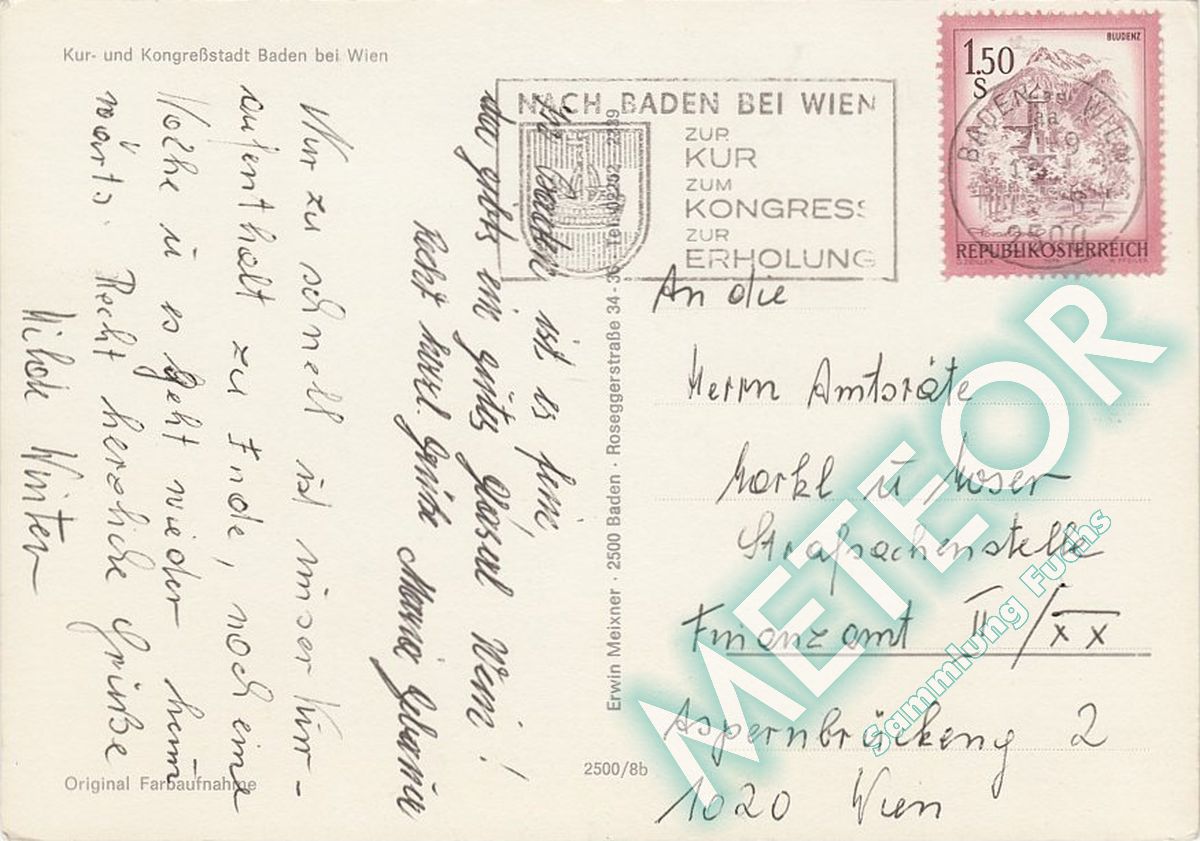 Kur- und Kongreßstadt Baden bei Wien
Nur zu schnell ist unser Kur-
aufenthalt zu Ende, noch eine
Woche u es geht wieder heim
wärts. Recht herzliche Grüße
Hilde Winter
In Baden ist es fein,
da gibts ein gutes Glaserl Wein!
Recht herzl. Grüße Maria
Original Farbaufnahme
Erwin Meixner · 2500 Baden · Roseggerstraße 34-36 Tel. 02252
2500/8b
NACH BADEN BEI WIEN
ZUR
KUR
ZUM
KONGRESS
ZUR
ERHOLUNG
BLUDENZ
1.50
S
REPUBLIK ÖSTERREICH
BADEN WIEN
2500
An die
Herrn Amtsräte
Markl u Moser
Strafsachenstelle
Finanzamt II/XX
Aspernbrückeng 2
1020 Wien
METEOR
Sammlung Fuchs